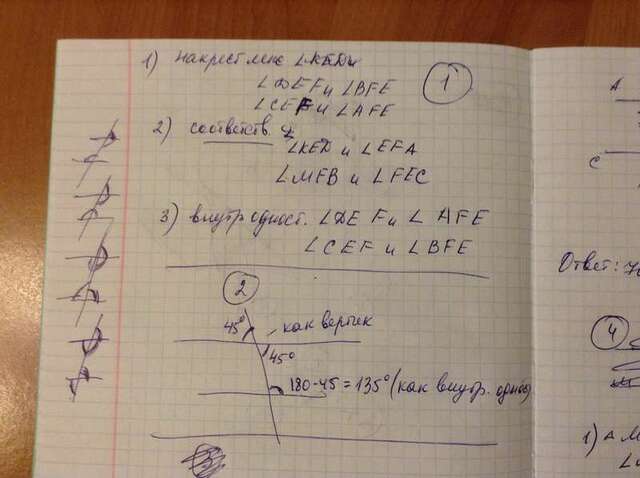 1) накрест леж ∠KED и
∠DEF и ∠BFE
∠CEF и ∠AFE
1
2) соответств.
∠KED и ∠EFA
∠MFB и ∠FEC
3) внутр одност. ∠DEF и ∠AFE
∠CEF и ∠BFE
2
45°
как вертик
45°
180-45=135° (как внутр. однос)
A
C
Ответ:
4
1)